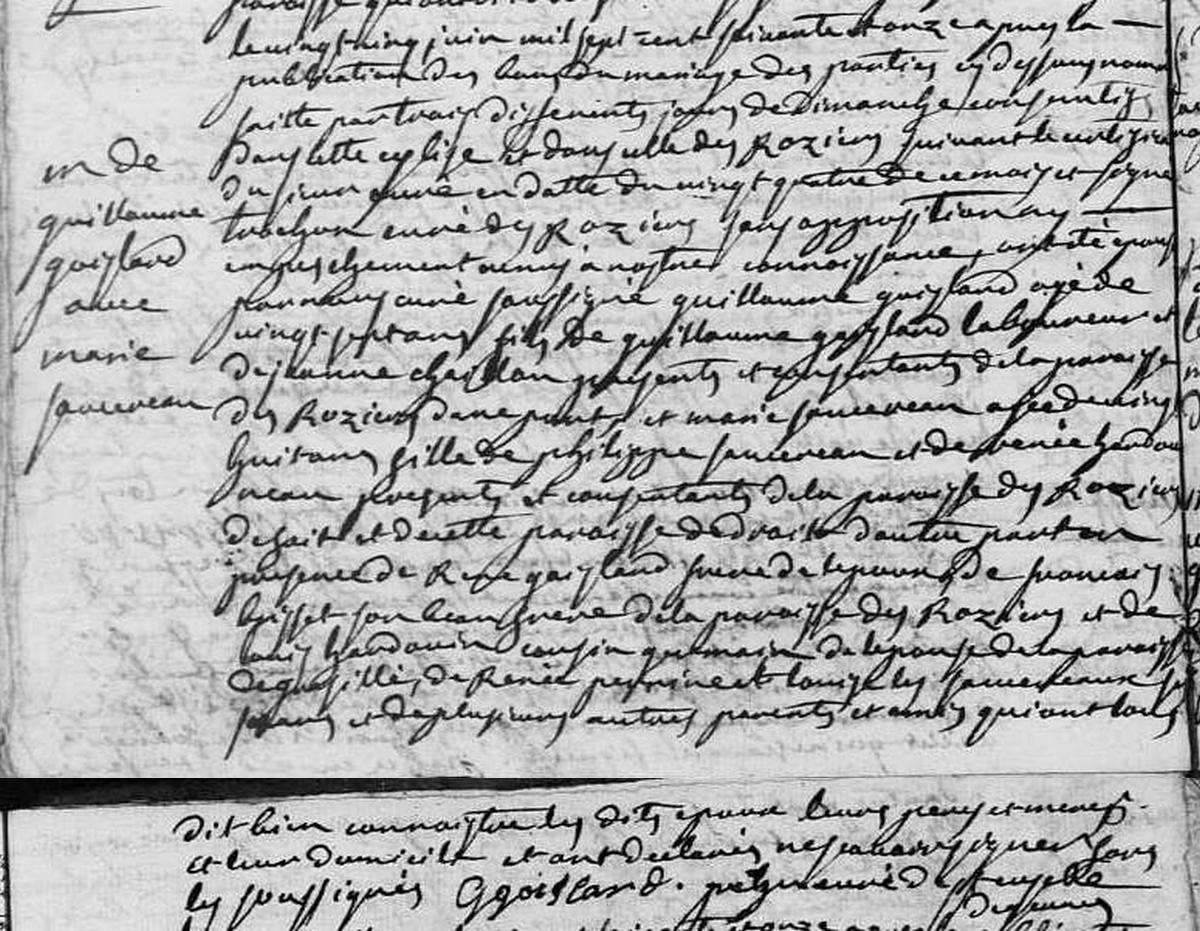 le vingt cinq juin mil sept cent soixante et onze apres la
publication des bans du mariage des parties cy dessous nommé
faitte par trois differents jours de Dimanche consecutifs
Dans cette eglise et dans celle des Roziers suivant le certificat
du sieur curé en datte du vingt quatre de ce mois et signé
curé des Roziers sans opposition ny
empeschement venus à nostre connoissance, ont été epousé
par nous curé soussigné guillaume goisland agé de
vingt sept ans fils de guillaume goisland laboureur et
de jeanne presents et consentants de la paroisse
des Roziers d'une part, et marie sancereau agée de vingt
huit ans fille de philippe sancereau et de renée
presents et consentants de la paroisse des Roziers
de fait et de cette paroisse de droit d'autre part en
presence de René goisland frere de lepoux, de francois
son beau frere de la paroisse des Roziers et de
louis baudouin cousin germain de lepouse de la paroisse
de Renée perrine et louise les sancereaux
et de plusieurs autres parents et amis qui ont tous
m de
guillaume
goisland
avec
marie
sancereau
dit bien connoistre les dits epoux leurs peres et meres
et leur domicile et ont declarés ne scavoir signer fors
les soussignés G goisland. curé de